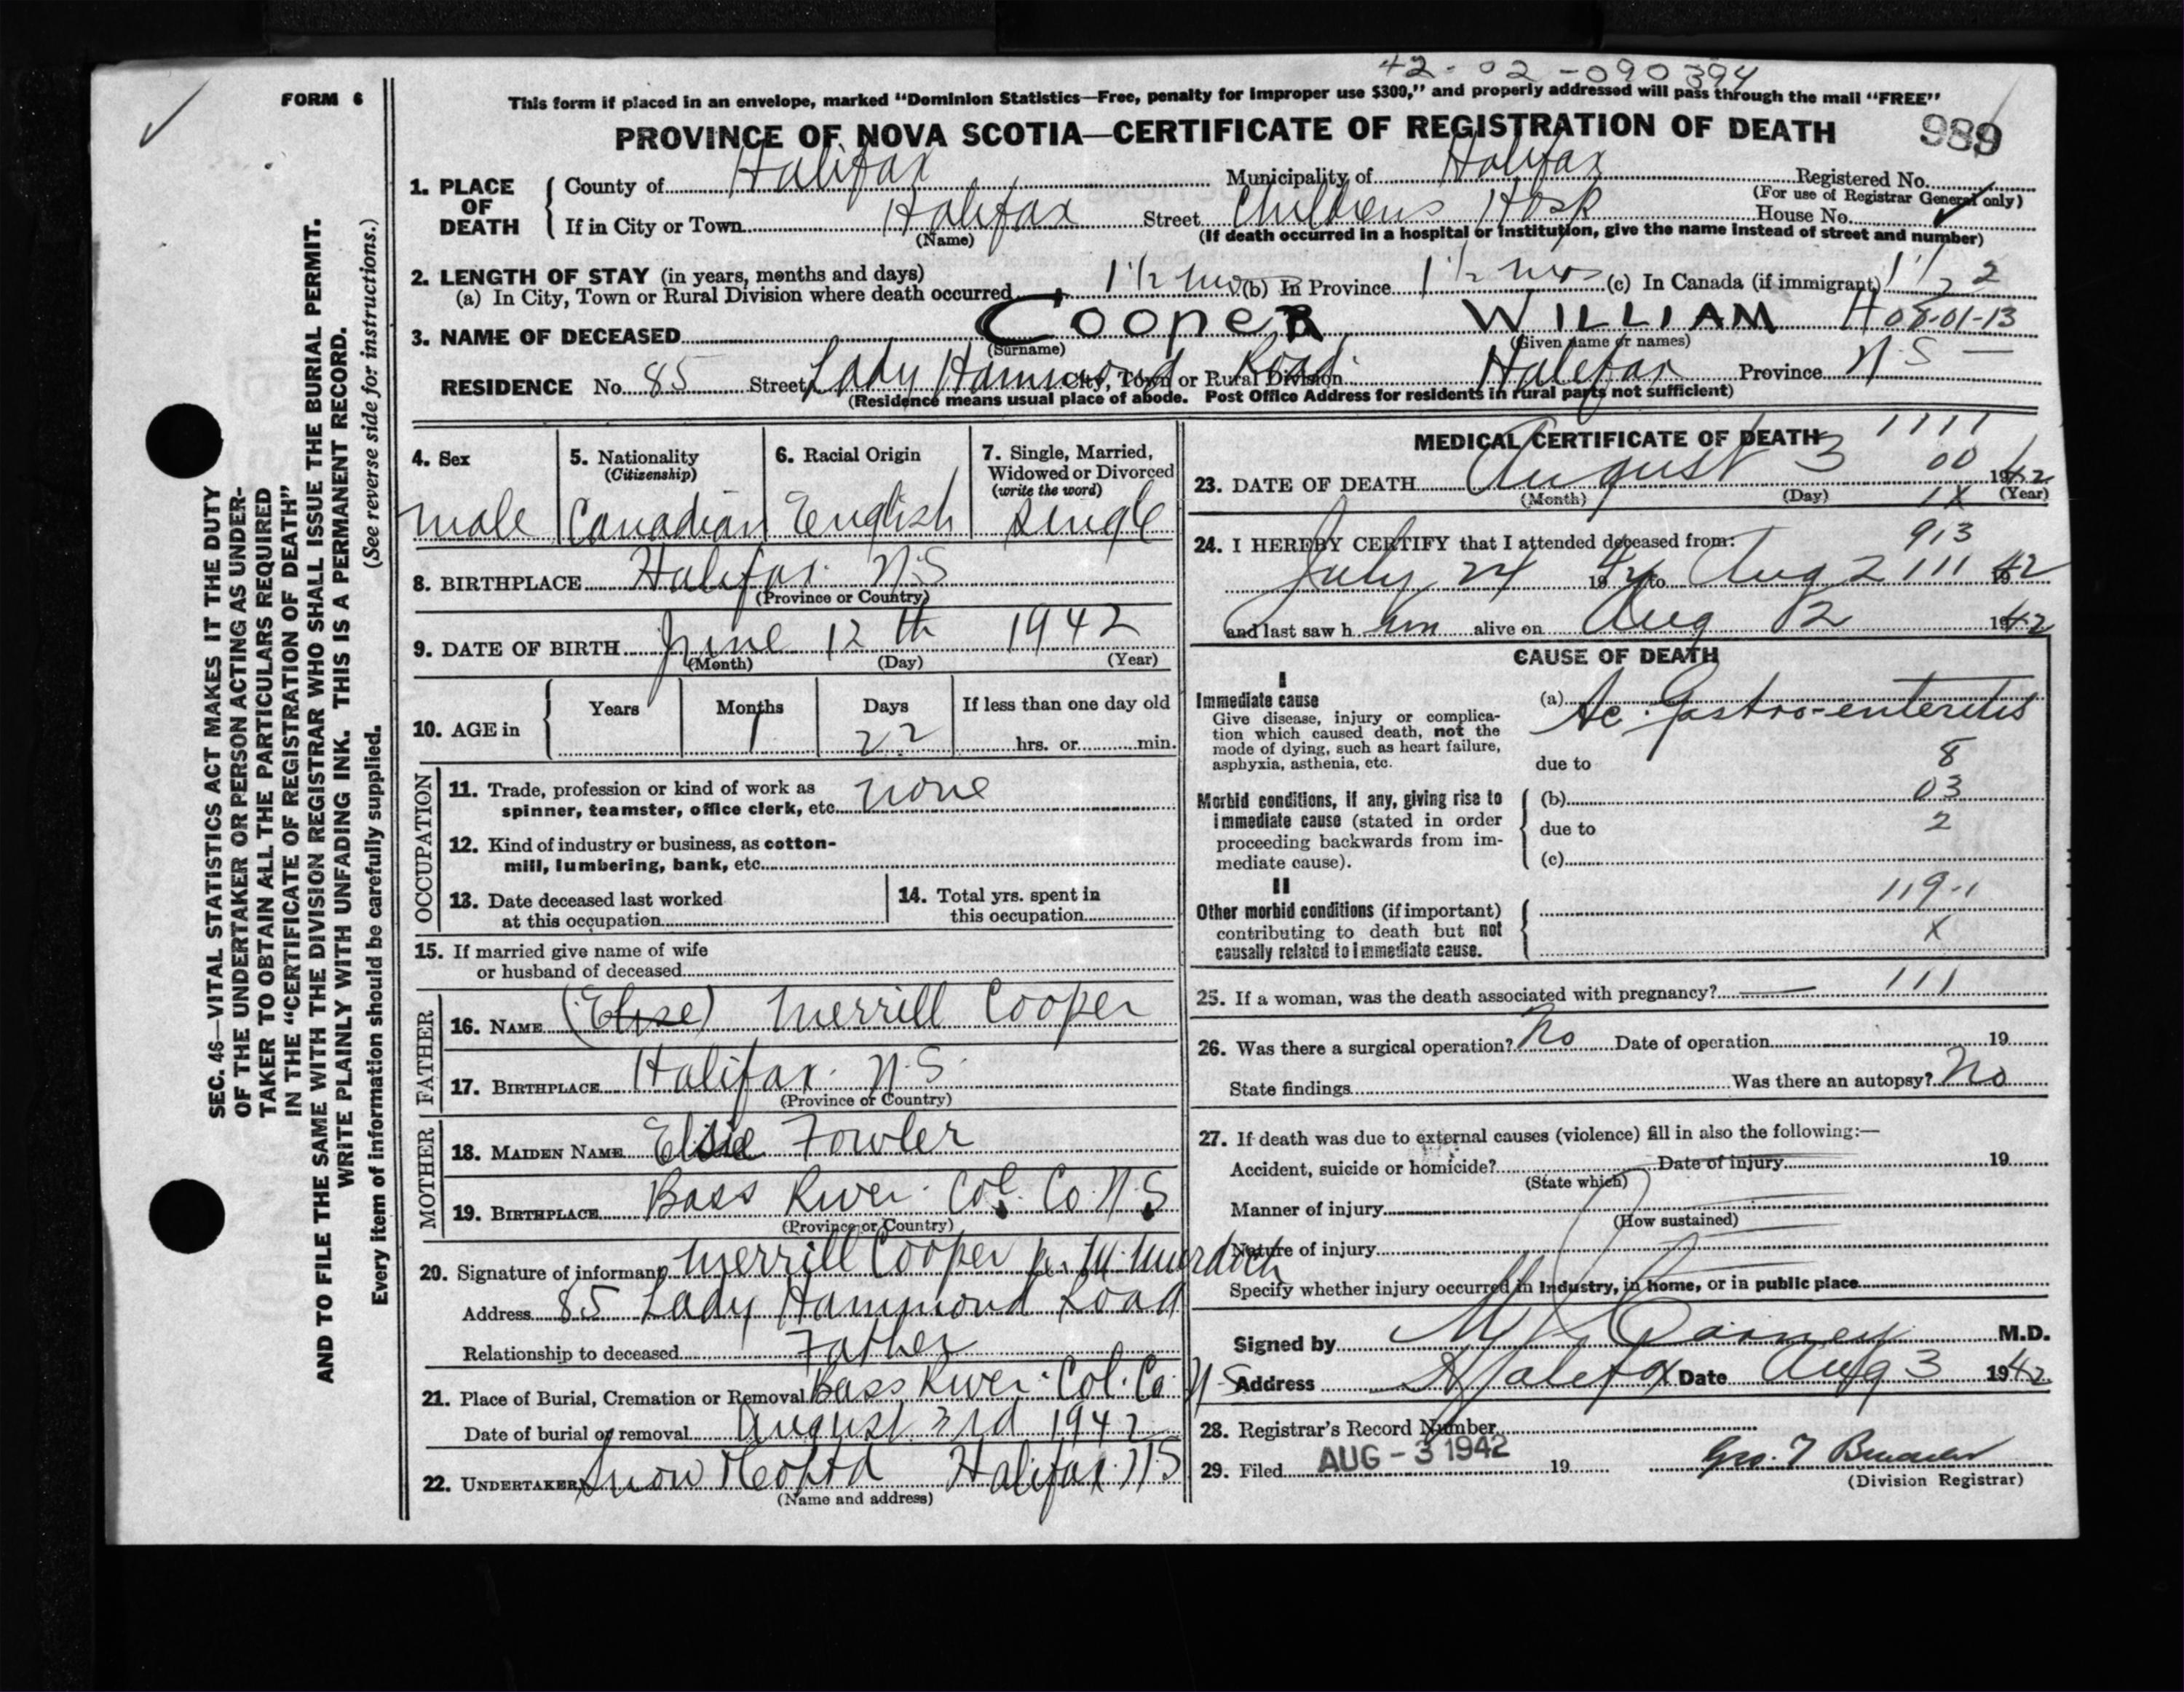 42-02-090394
FORM 6
This form if placed in an envelope, marked "Dominion Statistics—Free, penalty for improper use $300," and properly addressed will pass through the mail "FREE"
PROVINCE OF NOVA SCOTIA—CERTIFICATE OF REGISTRATION OF DEATH 989
1. PLACE OF DEATH { County of Halifax Municipality of Halifax Registered No.
(For use of Registrar General only)
If in City or Town Halifax Street Childrens Hosp House No.
(Name) (If death occurred in a hospital or institution, give the name instead of street and number)
2. LENGTH OF STAY (in years, months and days)
(a) In City, Town or Rural Division where death occurred 1 1/2 mos (b) In Province 1 1/2 mos (c) In Canada (if immigrant)
3. NAME OF DECEASED COOPER WILLIAM 08-01-13
(Surname) (Given name or names)
RESIDENCE No. 85 Street Lady Hammond Road City, Town or Rural Division Halifax Province N S
(Residence means usual place of abode. Post Office Address for residents in rural parts not sufficient)
4. Sex male
5. Nationality (Citizenship) Canadian
6. Racial Origin English
7. Single, Married, Widowed or Divorced (write the word) single
8. BIRTHPLACE Halifax. N.S
(Province or Country)
9. DATE OF BIRTH June 12th 1942
(Month) (Day) (Year)
10. AGE in { Years Months Days If less than one day old
1 22 hrs. or min.
OCCUPATION
11. Trade, profession or kind of work as spinner, teamster, office clerk, etc. none
12. Kind of industry or business, as cotton-mill, lumbering, bank, etc.
13. Date deceased last worked at this occupation
14. Total yrs. spent in this occupation
15. If married give name of wife or husband of deceased
FATHER
16. NAME (Elise) Merrill Cooper
17. BIRTHPLACE Halifax. N.S.
(Province or Country)
MOTHER
18. MAIDEN NAME Elsie Fowler
19. BIRTHPLACE Bass River. Col. Co. N.S
(Province or Country)
20. Signature of informant Merrill Cooper per M. Murdoch
Address 85 Lady Hammond Road
Relationship to deceased Father
21. Place of Burial, Cremation or Removal Bass River. Col. Co. N.S
Date of burial or removal August 3rd 1942
22. UNDERTAKER Snow & Co Ltd Halifax. N.S
(Name and address)
MEDICAL CERTIFICATE OF DEATH 1111
23. DATE OF DEATH August 3 00 1942
(Month) (Day) 1X (Year)
24. I HEREBY CERTIFY that I attended deceased from: 913
July 24 1942 to Aug 2 111 1942
and last saw him alive on Aug 2 1942
CAUSE OF DEATH
I
Immediate cause (a) Ac. Gastro-enteritis
Give disease, injury or complication which caused death, not the mode of dying, such as heart failure, asphyxia, asthenia, etc.
due to 8
Morbid conditions, if any, giving rise to immediate cause (stated in order proceeding backwards from immediate cause).
(b) 03
due to 2
(c)
II
Other morbid conditions (if important) contributing to death but not causally related to immediate cause.
119-1
X
25. If a woman, was the death associated with pregnancy? — 111
26. Was there a surgical operation? No Date of operation 19
State findings Was there an autopsy? No
27. If death was due to external causes (violence) fill in also the following:—
Accident, suicide or homicide? Date of injury 19
(State which)
Manner of injury
(How sustained)
Nature of injury
Specify whether injury occurred in industry, in home, or in public place
Signed by M.D.
Address Halifax Date Aug 3 1942
28. Registrar's Record Number
29. Filed AUG - 3 1942 19 Geo. F
(Division Registrar)
SEC. 46—VITAL STATISTICS ACT MAKES IT THE DUTY
OF THE UNDERTAKER OR PERSON ACTING AS UNDER-
TAKER TO OBTAIN ALL THE PARTICULARS REQUIRED
IN THE "CERTIFICATE OF REGISTRATION OF DEATH"
AND TO FILE THE SAME WITH THE DIVISION REGISTRAR WHO SHALL ISSUE THE BURIAL PERMIT.
WRITE PLAINLY WITH UNFADING INK. THIS IS A PERMANENT RECORD.
Every item of information should be carefully supplied. (See reverse side for instructions.)